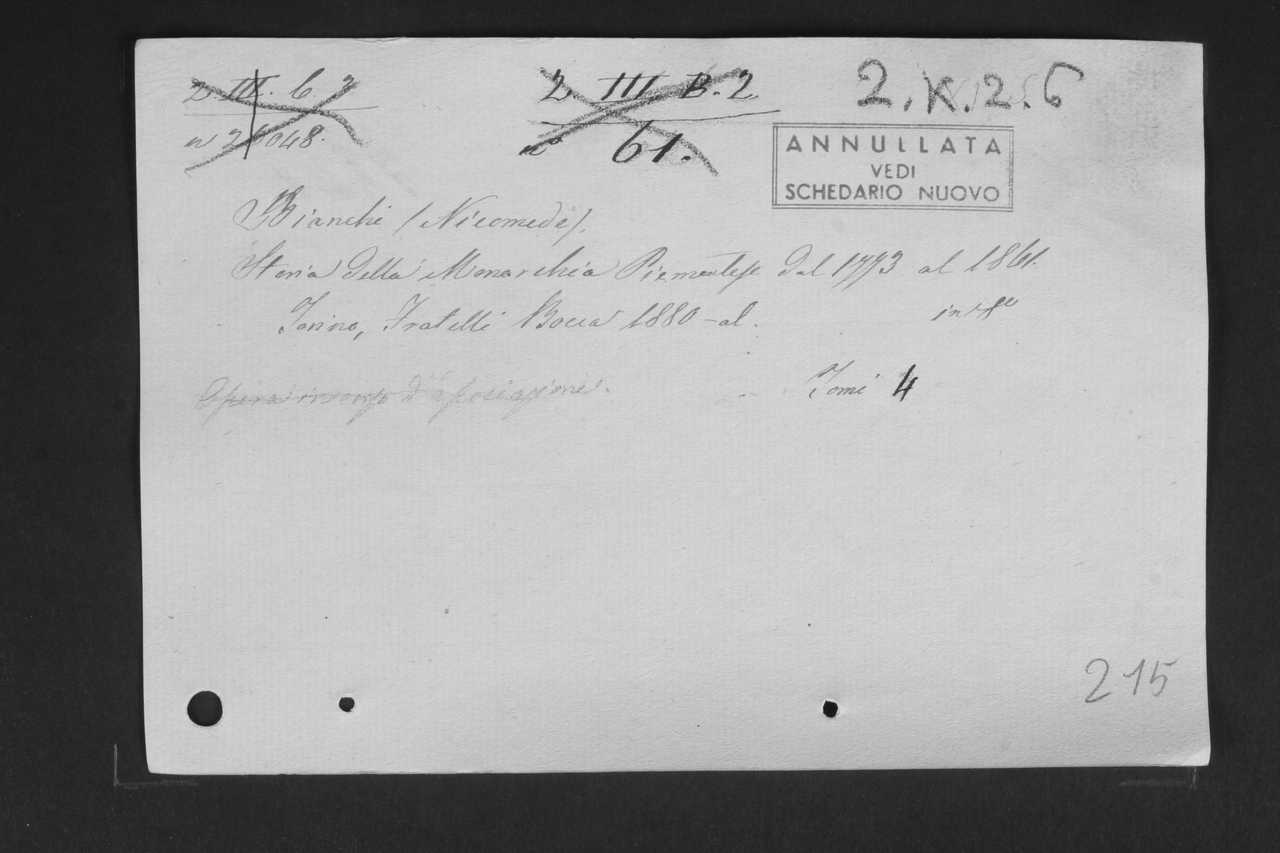 2 III. 6. 2
2. III B. 2
2. K. 2. 6
nº 61.
ANNULLATA
VEDI
SCHEDARIO NUOVO
Bianchi (Nicomede).
Storia della Monarchia Piemontese dal 1773 al 1861.
Torino, Fratelli Bocca 1880 - al. in 8º
Opera in corso d'associazione. Tomi 4
215